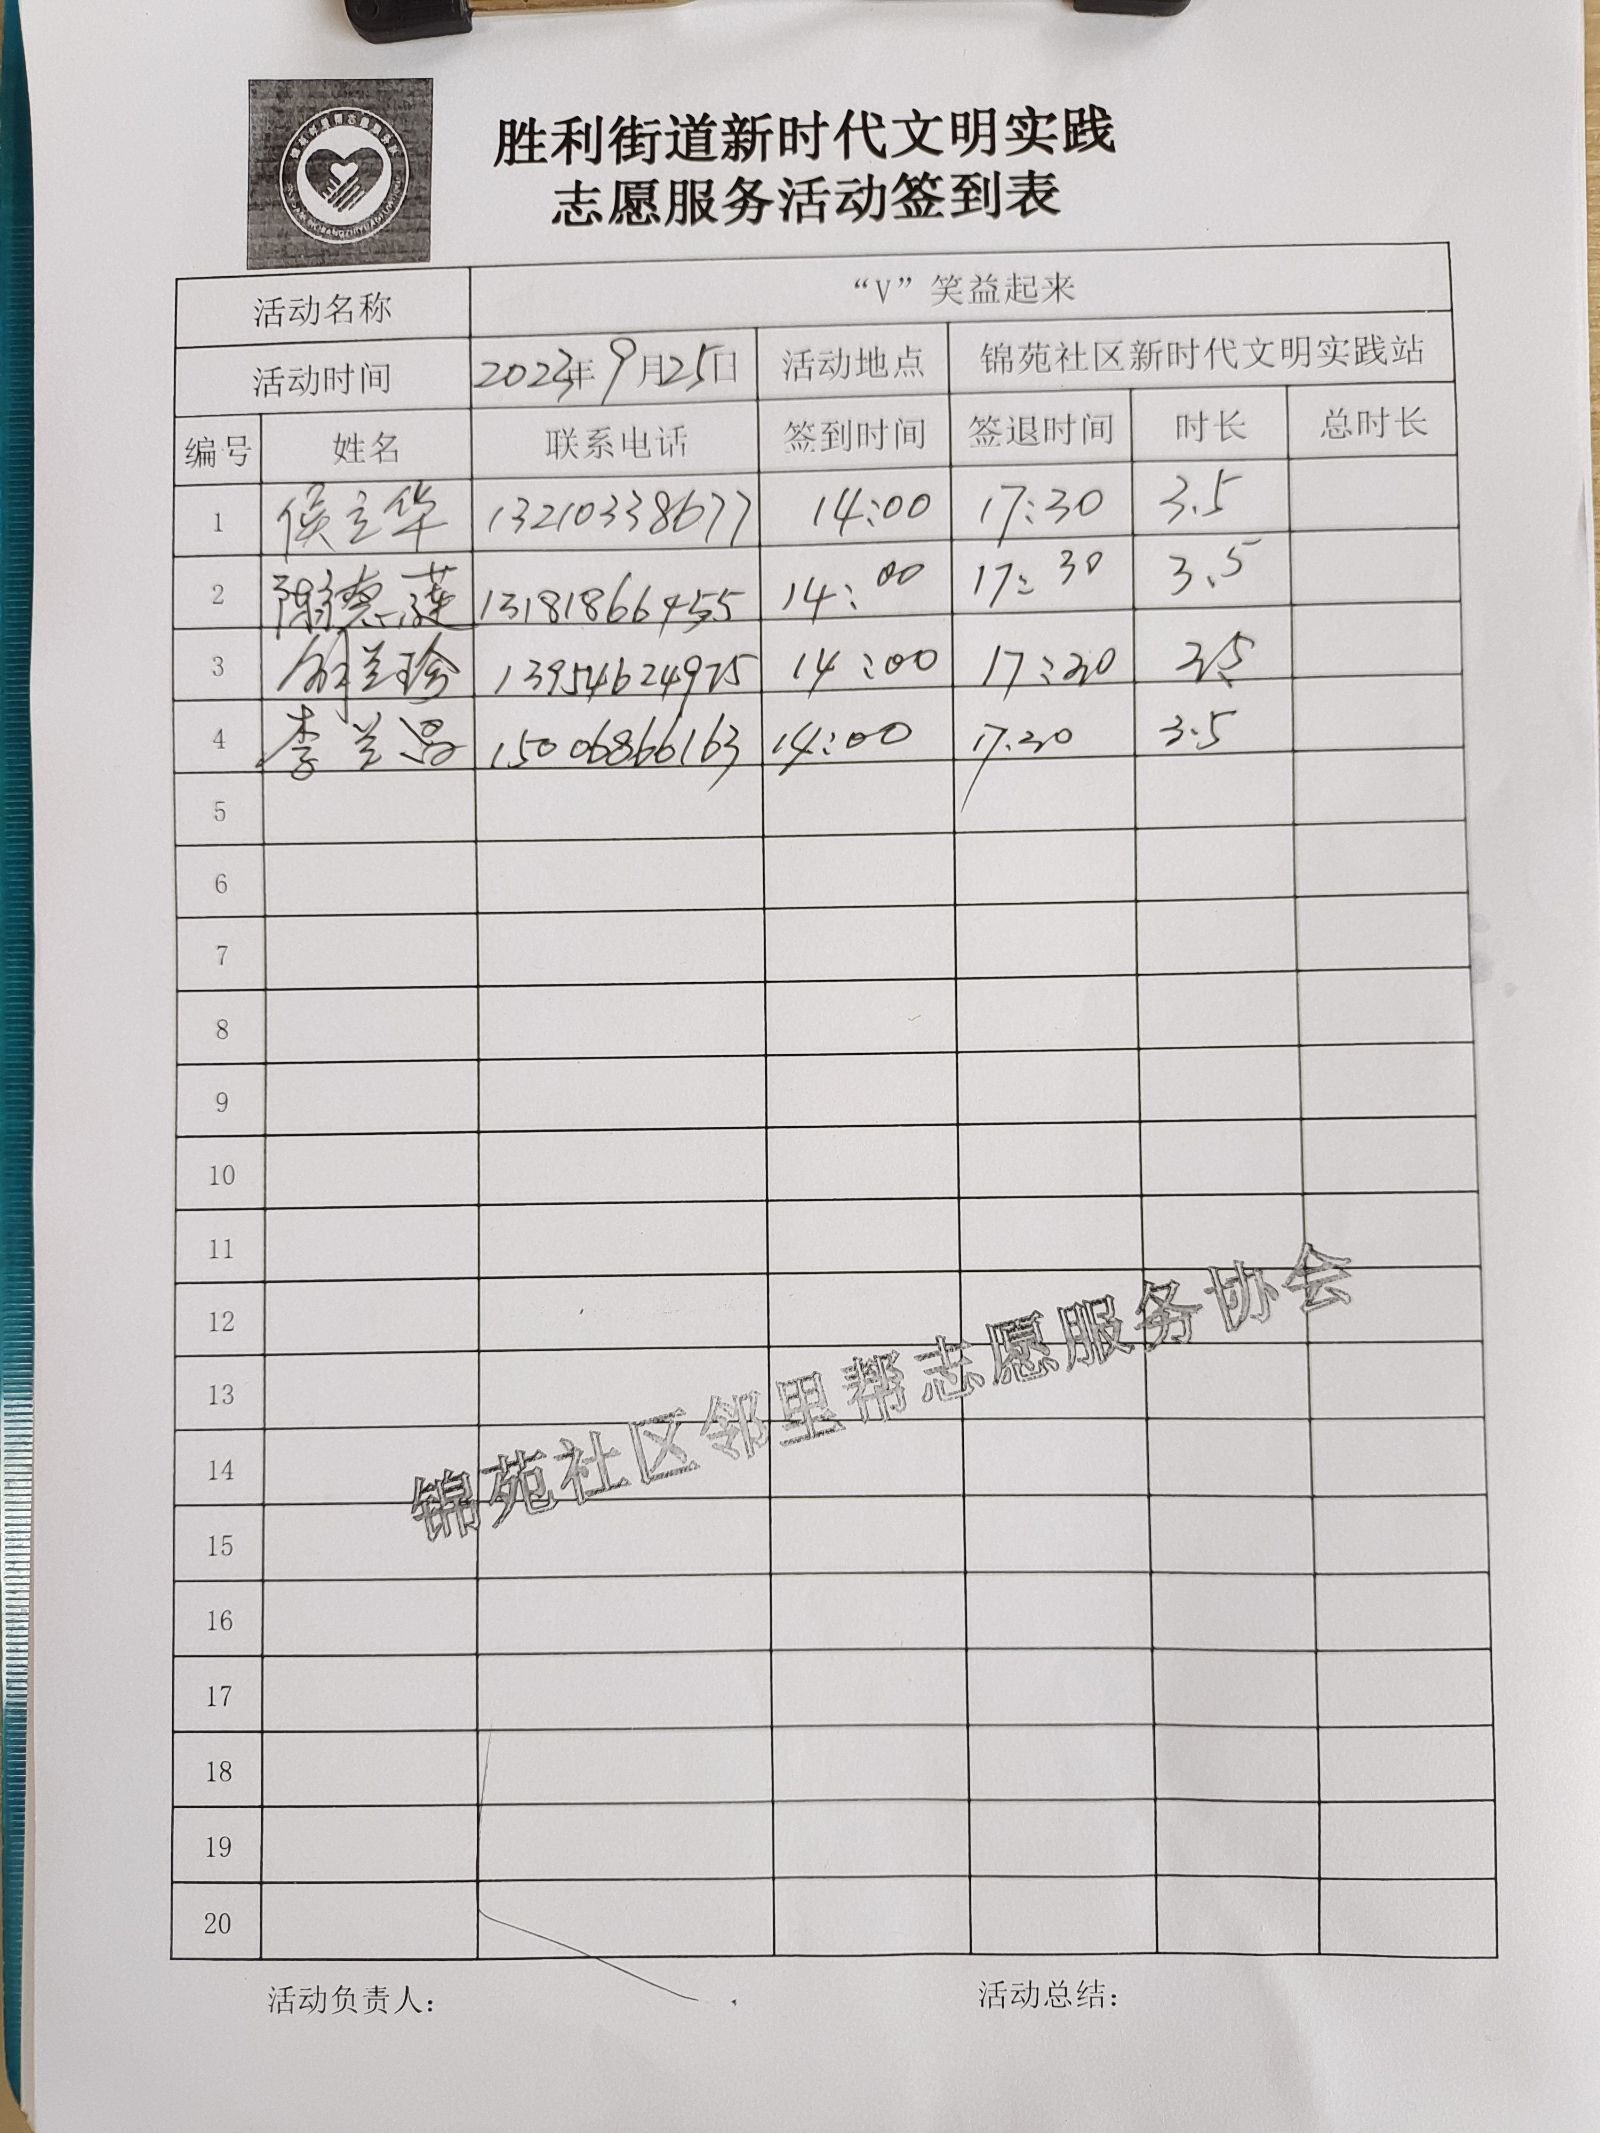 胜利街道新时代文明实践
志愿服务活动签到表
活动名称 “V”笑益起来
活动时间 2023年9月25日 活动地点 锦苑社区新时代文明实践站
编号 姓名 联系电话 签到时间 签退时间 时长 总时长
1 侯立华 13210338677 14:00 17:30 3.5
2 隋德莲 13181866455 14:00 17:30 3.5
3 兰珍 13954624975 14:00 17:30 3.5
4 李兰 15006866163 14:00 17.30 3.5
5
6
7
8
9
10
11
12
13
14
15
16
17
18
19
20
锦苑社区邻里帮志愿服务协会
活动负责人: 活动总结: